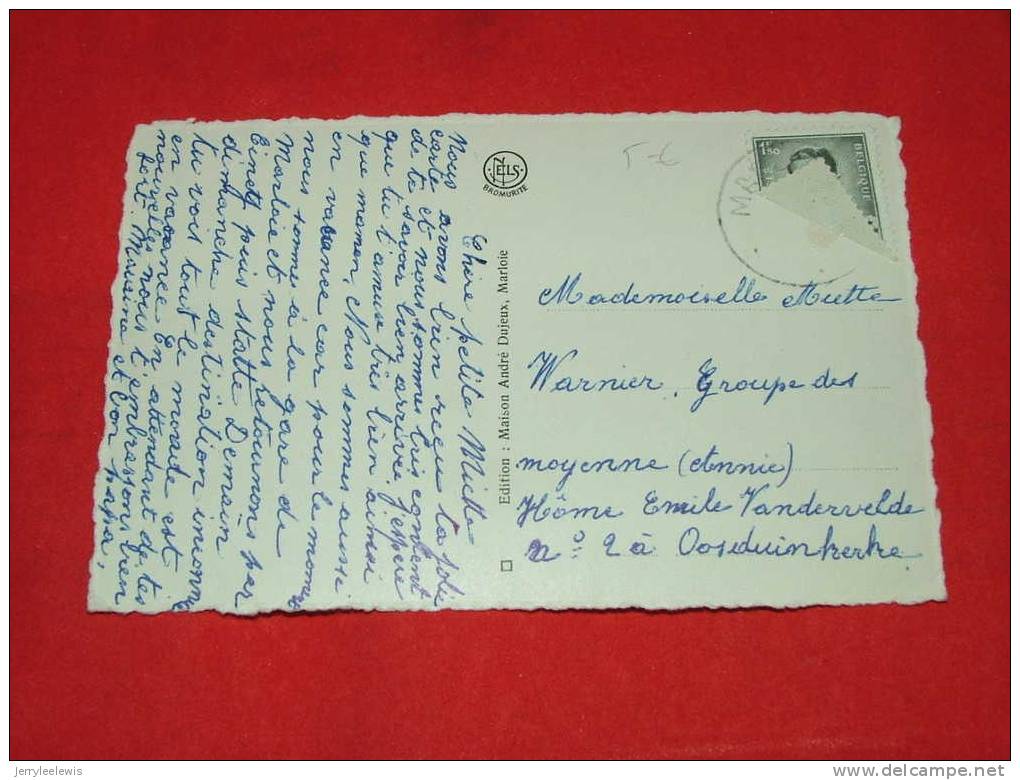 Chère petite Miette
Nous avons bien reçu ta joli
carte et nous sommes très content
de te savoir bien arrivée. j'espère
que tu t'amuse très bien ainssi
que maman. Nous sommes aussi
en vacance car pour le moment
nous somme à la gare de
Marloie et nous retournons par
Ciney puis statte Demain
dimhanche destination inconnu
tu vois tout le monde est
en vacance En attendant de tes
nouvelles nous t'embrassons bien
fort. Maraine et bon papa.
NELS
BROMURITE
Edition : Maison André Dujeux, Marloie
1F50
BELGIQUE
MAR
Mademoiselle Miette
Warnier, Groupe des
moyenne (Annie)
Hôme Emile Vandervelde
n° 2 à Oosduinkerke
jerryleelewis
delcampe.net